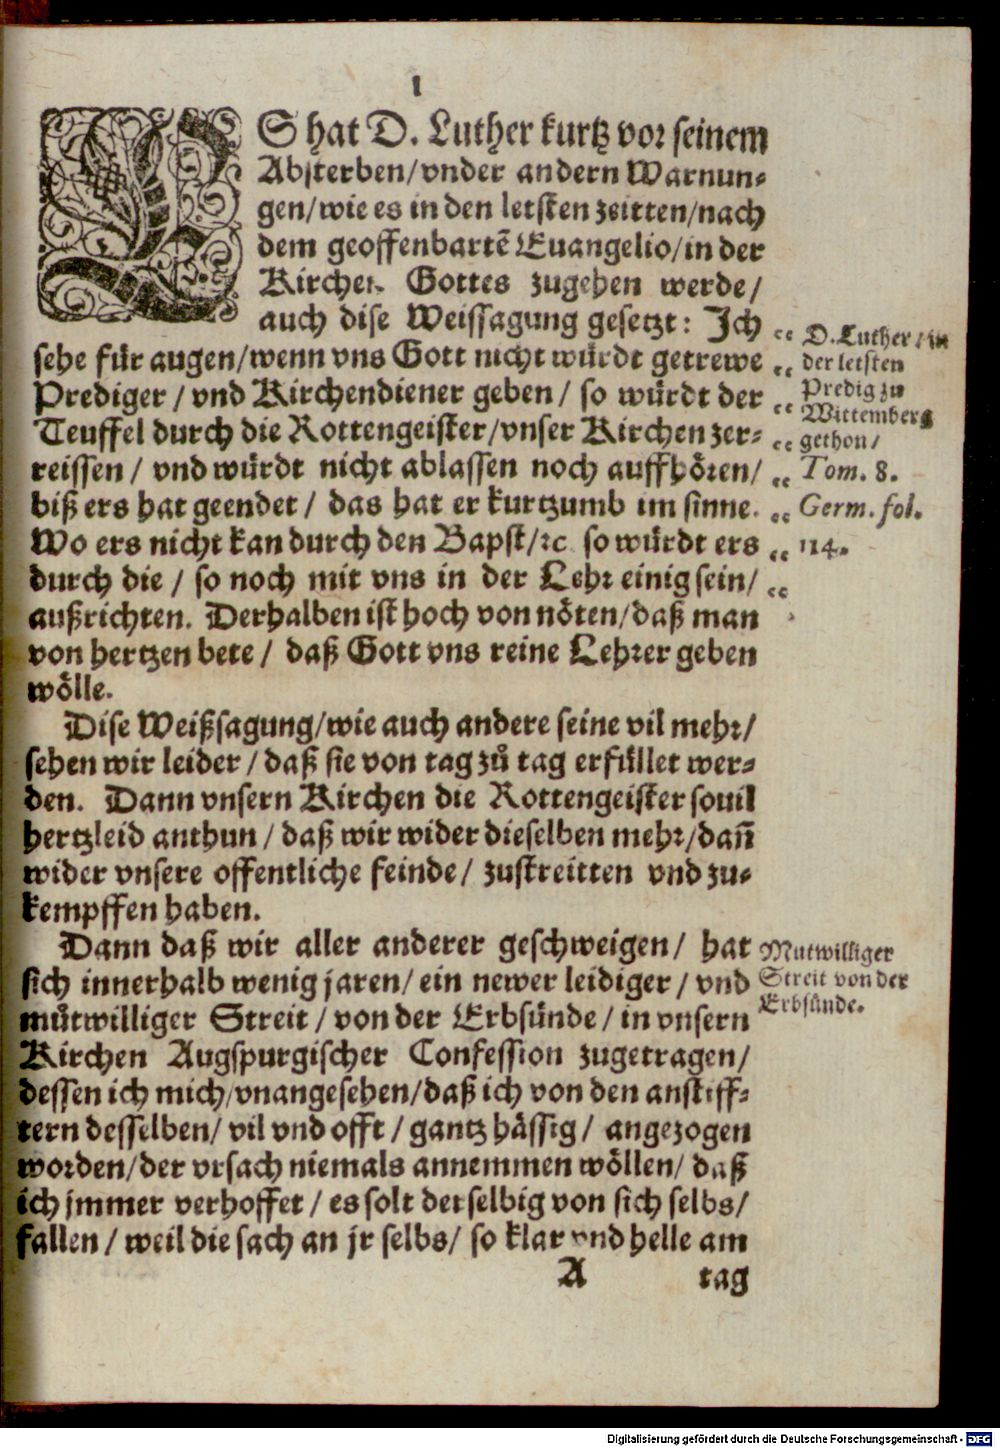 1
ES hat D. Luther kurtz vor seinem
Absterben/vnder andern Warnun⸗
gen/wie es in den letsten zeitten/nach
dem geoffenbartẽ Euangelio/in der
Kirchen Gottes zugehen werde/
auch dise Weissagung gesetzt: Ich
sehe für augen/wenn vns Gott nicht würdt getrewe
Prediger/vnd Kirchendiener geben/ so würdt der
Teuffel durch die Rottengeister/vnser Kirchen zer⸗
reissen/ vnd würdt nicht ablassen noch auffhören/
biß ers hat geendet/ das hat er kurtzumb im sinne.
Wo ers nicht kan durch den Bapst/ꝛc. so würdt ers
durch die/ so noch mit vns in der Lehr einig sein/
außrichten. Derhalben ist hoch von nöten/daß man
von hertzen bete/ daß Gott vns reine Lehrer geben
wölle.
D. Luther/in
der letsten
Predig zu
Wittemberg
gethon/
Tom. 8.
Germ. fol.
114.
Dise Weißsagung/wie auch andere seine vil mehr/
sehen wir leider/daß sie von tag zů tag erfüllet wer⸗
den. Dann vnsern Kirchen die Rottengeister souil
hertzleid anthun/daß wir wider dieselben mehr/dañ
wider vnsere offentliche feinde/ zustreitten vnd zu⸗
kempffen haben.
Dann daß wir aller anderer geschweigen/ hat
sich innerhalb wenig jaren/ein newer leidiger/vnd
můtwilliger Streit/von der Erbsünde/in vnsern
Kirchen Augspurgischer Confession zugetragen/
dessen ich mich/vnangesehen/daß ich von den anstiff⸗
tern desselben/vil vnd offt/gantz hässig/ angezogen
worden/der vrsach niemals annemmen wöllen/daß
ich jmmer verhoffet/es solt derselbig von sich selbs/
fallen/weil die sach an jr selbs/ so klar vnd helle am
Mutwilliger
Streit von der
Erbsünde.
A tag
Digitalisierung gefördert durch die Deutsche Forschungsgemeinschaft - DFG